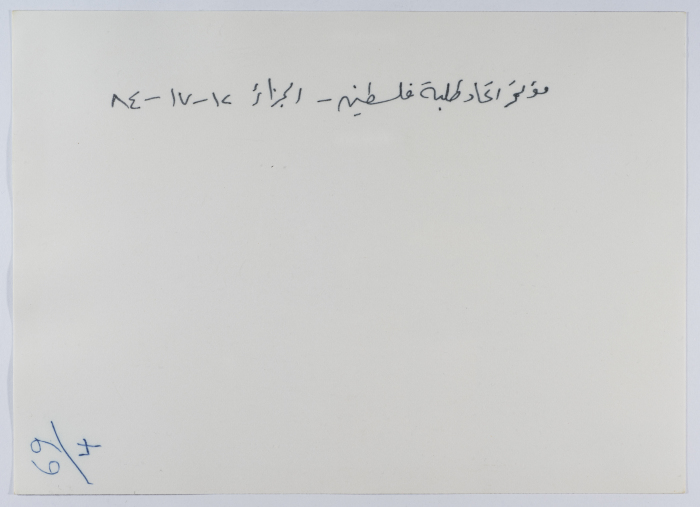 مؤتمر اتحاد طلبة فلسطين - الجزائر ١٢-١٧-٨٤
69/4